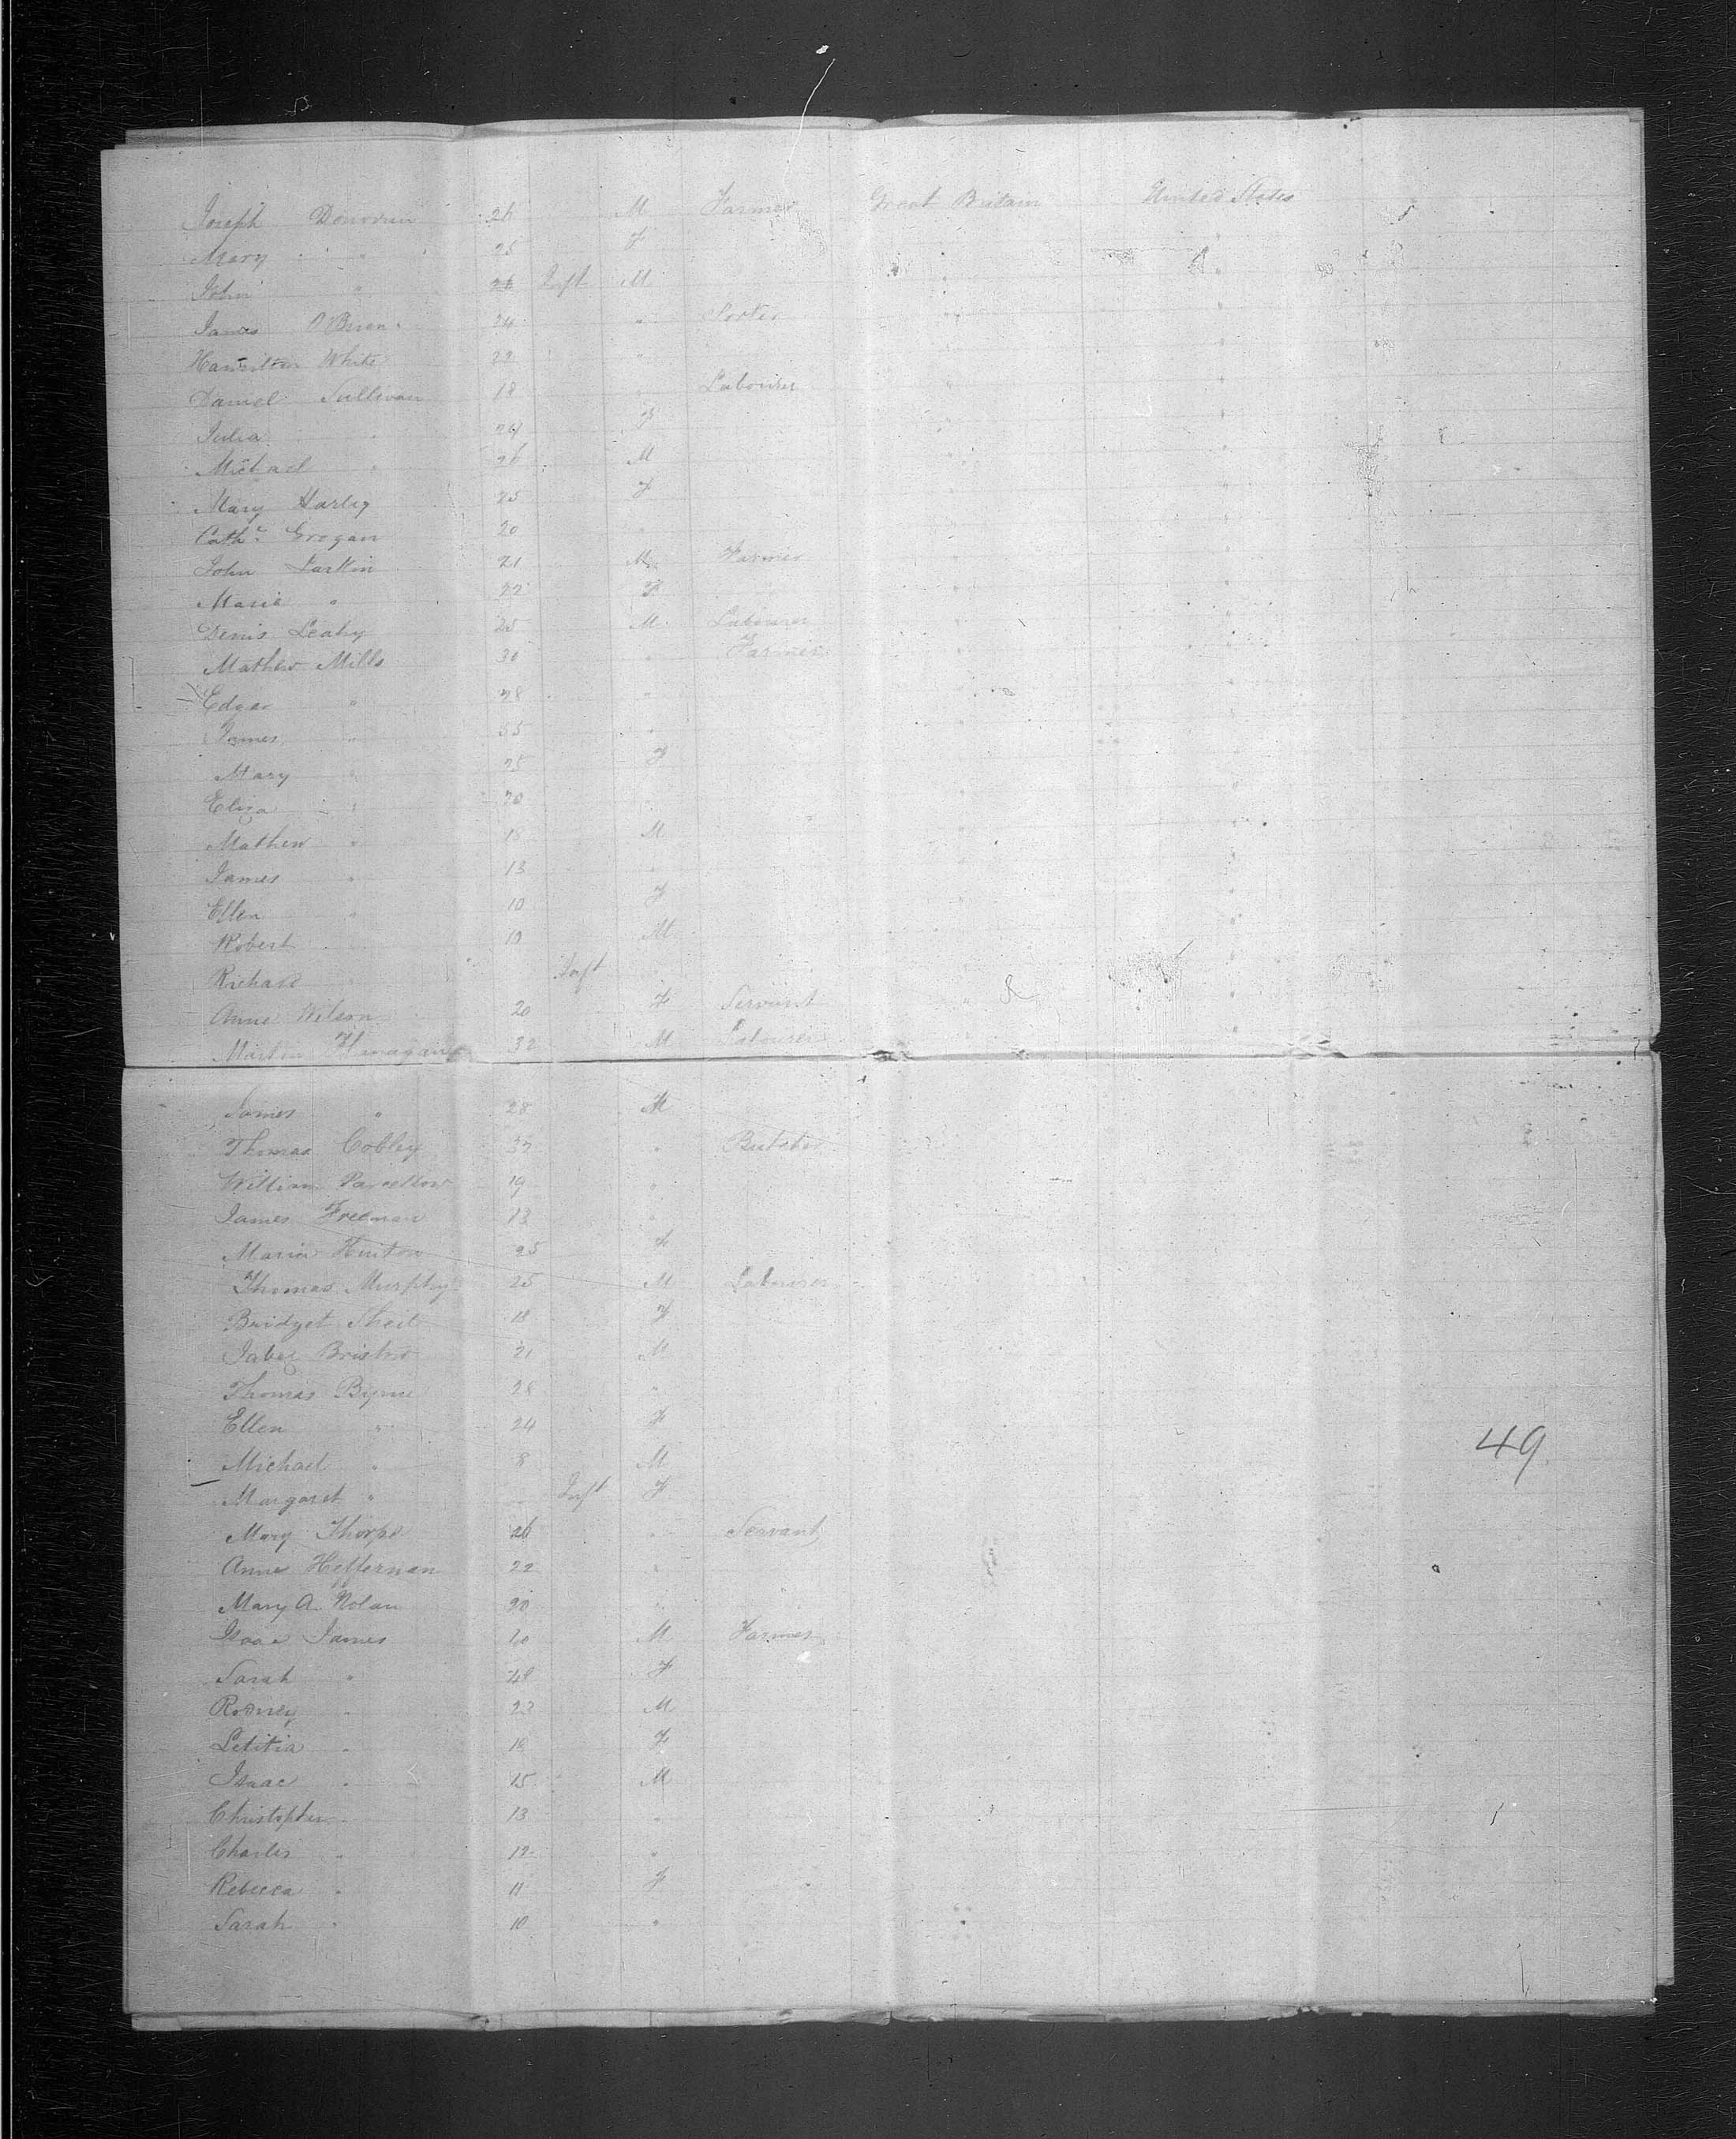 Joseph Donovan 26 M Farmer Great Britain United States
Mary " 25 F " "
John " Inft M " "
James O'Brien 24 " " "
Hamilton White 22 " "
Daniel Sullivan 18 " Labourer " "
Julia " 24 F " "
Michael " 26 M " "
Mary Harley 25 F " "
Cath. Grogan 20 " "
John Larkin 21 M Farmer " "
Maria " 22 F " "
Denis Leahy 25 M Labourer " "
Mathew Mills 30 " Farmer " "
Edgar " 28 " " "
James " 55 " "
Mary " 25 F "
Eliza " " "
Mathew " 18 M " "
James " 13 " "
Ellen " 10 F " "
Robert " 10 M "
Richard " Inft "
Anne Wilson 20 F Servant " "
Martin Flanagan 32 M Labourer " "
James " 28 M
Thomas Cobley " Butcher
William 19 "
James Freeman 13 "
Maria Hinton 25 F
Thomas Murphy 25 M Labourer
Bridget Sheil 18 F
Jabez Bristow 21 M
Thomas Byrne 28 "
Ellen " 24 F
Michael " 8 M
49
Margaret " Inft F
Mary Thorpe 26 " Servant
Anne Heffernan 22 "
Mary A. Nolan 20 " "
Isaac James M Farmer
Sarah " 48 F
Rodney " 23 M
Letitia " 18 F
Isaac " 15 M
Christopher " 13 "
Charles " 12 "
Rebecca " 11 F
Sarah " 10 "